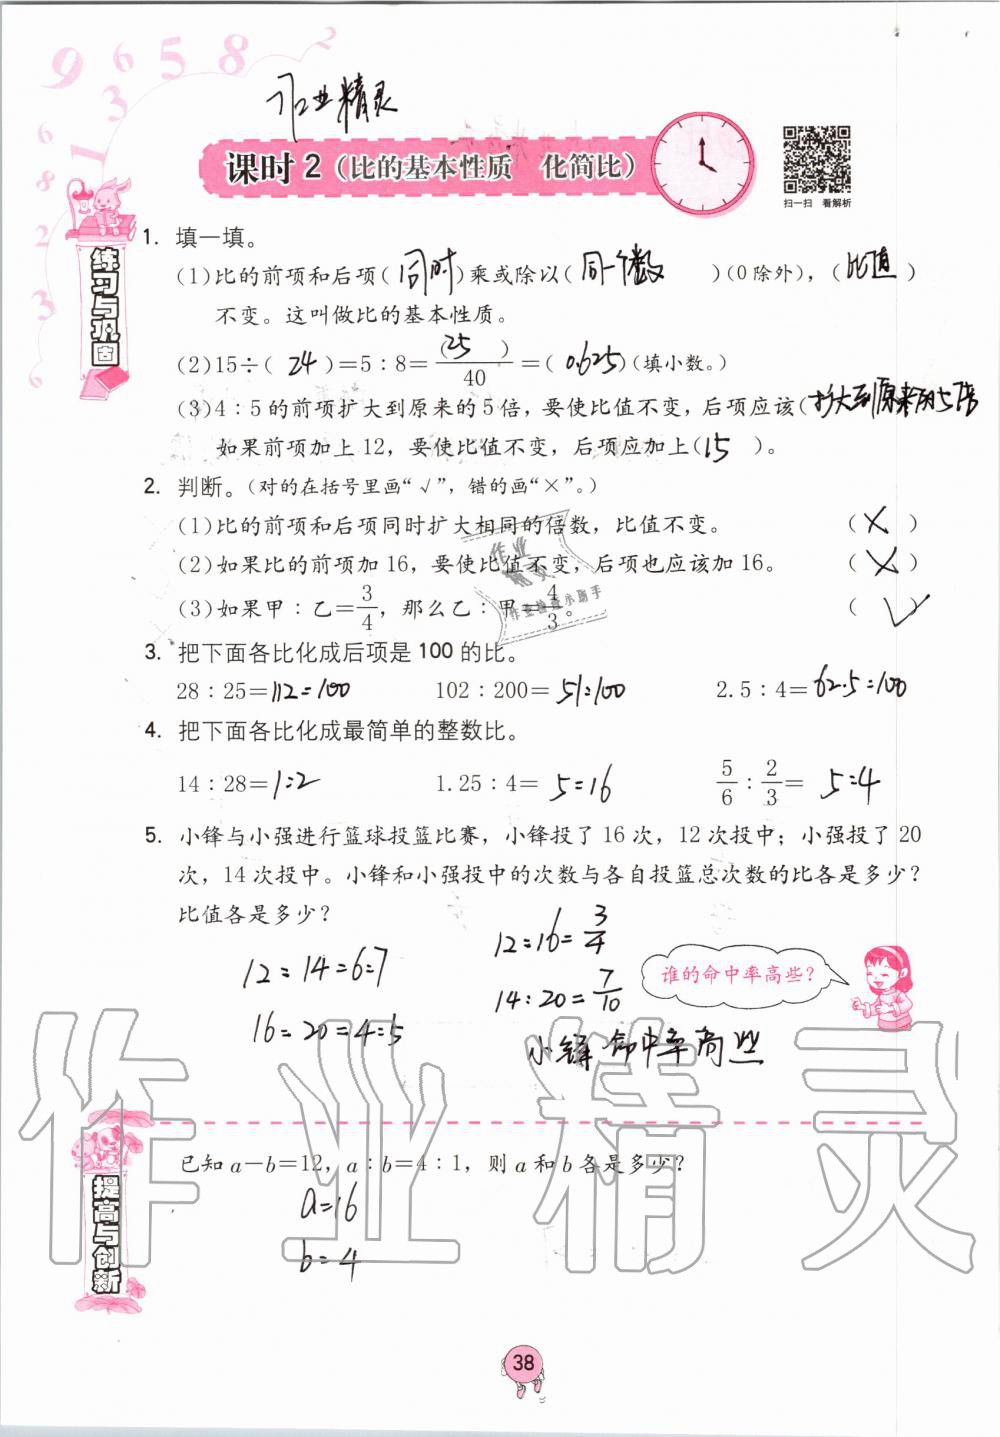 9 6 5 8 2
3
6 1
8
2
3
6
作业精灵
课时 2（比的基本性质 化简比）
扫一扫 看解析
练习与巩固
1. 填一填。
(1)比的前项和后项(同时)乘或除以(同一个数)(0除外)，(比值)
不变。这叫做比的基本性质。
(2)15÷(24)=5：8=(25)/40=(0.625)(填小数。)
(3)4：5的前项扩大到原来的5倍，要使比值不变，后项应该(扩大到原来的5倍
如果前项加上12，要使比值不变，后项应加上(15)。
2. 判断。(对的在括号里画“√”，错的画“×”。)
(1)比的前项和后项同时扩大相同的倍数，比值不变。 (×)
(2)如果比的前项加16，要使比值不变，后项也应该加16。 (×)
(3)如果甲：乙=3/4，那么乙：甲=4/3。 (√)
作业精灵
作业检查小助手
3. 把下面各比化成后项是100的比。
28：25=112:100 102：200=51:100 2.5：4=62.5:100
4. 把下面各比化成最简单的整数比。
14：28=1:2 1.25：4=5:16 5/6：2/3=5:4
5. 小锋与小强进行篮球投篮比赛，小锋投了16次，12次投中；小强投了20
次，14次投中。小锋和小强投中的次数与各自投篮总次数的比各是多少？
比值各是多少？
12:14=6:7
16:20=4:5
12:16=3/4
14:20=7/10
小锋命中率高些
谁的命中率高些？
作业精灵
提高与创新
已知a-b=12，a：b=4：1，则a和b各是多少？
a=16
b=4
38